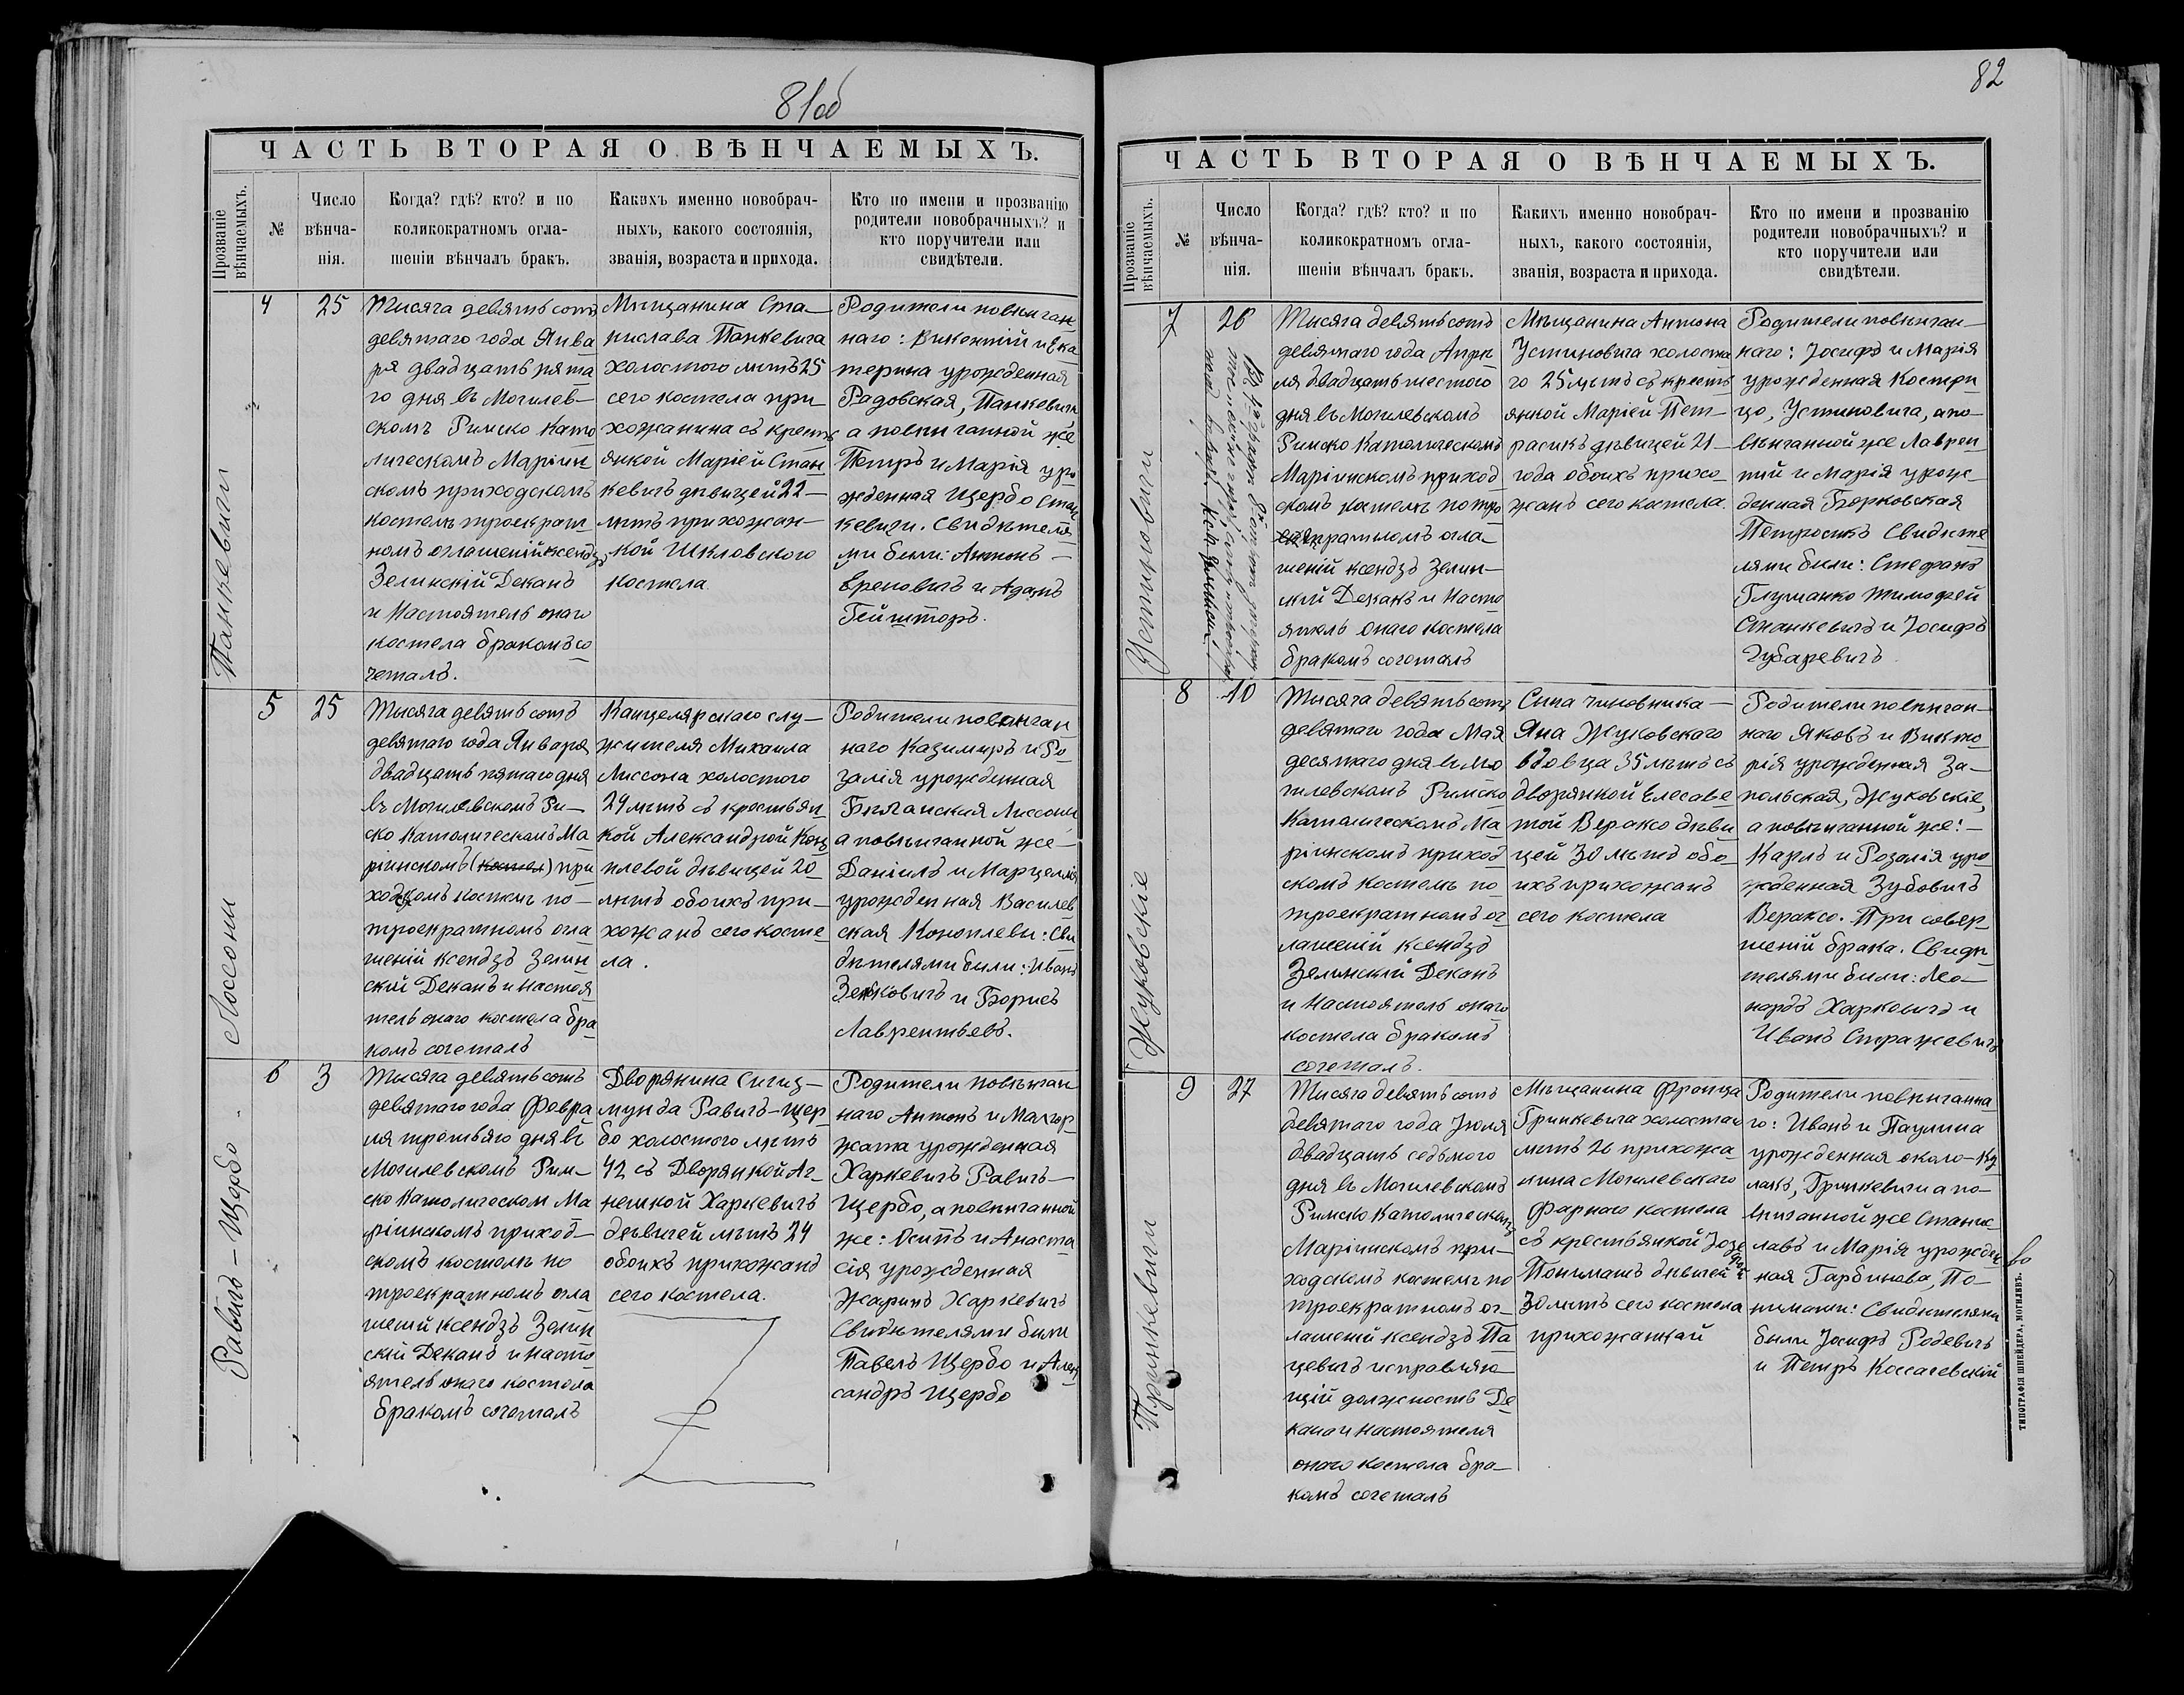 81об
ЧАСТЬ ВТОРАЯ О ВѢНЧАЕМЫХЪ.
Прозваніе
вѣнчаемыхъ.
№
Число
вѣнча-
нія.
Когда? гдѣ? кто? и по
коликократномъ огла-
шеніи вѣнчалъ бракъ.
Какихъ именно новобрач-
ныхъ, какого состоянія,
званія, возраста и прихода.
Кто по имени и прозванію
родители новобрачныхъ? и
кто поручители или
свидѣтели.
Панкевичи
4
25
Тысяча девятьсотъ
девятаго года Янва
ря двадцать пята
го дня въ Могилев-
скомъ Римско Като
лическомъ Маріин
скомъ приходскомъ
костелѣ троекрат
номъ оглашеніи ксендзъ
Зелинскій Деканъ
и Настоятель онаго
костела бракомъ со
четалъ.
Мѣщанина Ста-
нислава Панкевича
холостого лѣтъ 25
сего костела при
хожанина съ крестъ
янкой Маріей Стан
кевичъ дѣвицей 22-
лѣтъ прихожан-
кой Шкловского
костела
Родители повѣнчан
наго: Викентій и Ека
терина урожденная
Радовская, Панкевичи
а повѣнчанной же
Петръ и Марія уро
жденная Щербо Стан
кевичи. Свидѣтеля
ми были: Антонъ-
Ереповичъ и Адамъ
Гейшторъ.
Лоссони
5
25
Тысяча девятьсотъ
девятаго года Января
двадцать пятаго дня
въ Могилевскомъ Ри-
ско Католическомъ Ма
ріинскомъ (костел) при
ходскомъ костелѣ по-
троекратномъ огла
шеніи ксендзъ Зелин
скій Деканъ и Настоя
тель онаго костела бра
комъ сочеталъ
Канцелярскаго слу-
жителя Михаила
Лиссона холостого
24 лѣтъ съ крестьян
кой Александрой Коно
плевой дѣвицей 20
лѣтъ обоихъ при-
хожанъ сего косте
ла.
Родители повѣнчан
наго Казимиръ и Ро
залія урожденная
Лиссони
а повѣнчанной же-
Даніилъ и Марцелля
урожденная Василев
ская Коноплевы: Сви
дѣтелями были: Иванъ
Зенковичъ и Борисъ
Лаврентьевъ.
Равичъ-Щербо
6
3
Тысяча девятьсотъ
девятаго года Февра
ля третьяго дня въ
Могилевскомъ Рим-
ско Католическом Ма
ріинскомъ приход-
скомъ костелѣ по
троекратномъ огла
шеніи ксендзъ Зелин
скій Деканъ и насто
ятель онаго костела
бракомъ сочеталъ
Дворянина Сигиз-
мунда Равичъ-Щер
бо холостого лѣтъ
42 съ Дворянкой Аг-
нешкой Харкевичъ
дѣвицей лѣтъ 24
обоихъ прихожанъ
сего костела.
Родители повѣнчан
наго Антонъ и Малгор
жата урожденная
Харкевичъ Равичъ-
Щербо, а повѣнчанной
же: Осипъ и Анаста
сія урожденная
Жаринъ Харкевичъ
Свидѣтелями были
Павелъ Щербо и Алек
сандръ Щербо
82
ЧАСТЬ ВТОРАЯ О ВѢНЧАЕМЫХЪ.
Прозваніе
вѣнчаемыхъ.
№
Число
вѣнча-
нія.
Когда? гдѣ? кто? и по
коликократномъ огла-
шеніи вѣнчалъ бракъ.
Какихъ именно новобрач-
ныхъ, какого состоянія,
званія, возраста и прихода.
Кто по имени и прозванію
родители новобрачныхъ? и
кто поручители или
свидѣтели.
Устиновичи
7
26
Тысяча девятьсотъ
девятаго года Апрѣ
ля двадцать шестого
дня въ Могилевскомъ
Римско Католическомъ
Маріинскомъ приход
скомъ костелѣ по тро
екратномъ огла-
шеніи ксендзъ Зелин-
скій Деканъ и Насто
ятель онаго костела
бракомъ сочеталъ
Мѣщанина Антона
Устиновича холоста
го 25 лѣтъ съ крестъ
янкой Маріей Пет-
расикъ дѣвицей 21-
года обоихъ прихо
жанъ сего костела.
Родители повѣнчан-
наго: Іосифъ и Марія
урожденная Костри
цо, Устиновича, а по-
вѣнчанной же Лаврен
тій и Марія урож-
денная Борковская
Петросикъ Свидѣте
лями были: Стефанъ
Глушанко Тимофей
Станкевичъ и Іосифъ
Губаревичъ
Жуковскіе
8
10
Тысяча девятьсотъ
девятаго года Мая
десятаго дня въ Мо
гилевскомъ Римско
Католическомъ Ма
ріинскомъ приход
скомъ костелѣ по
троекратномъ ог
лашеніи ксендзъ
Зелинскій Деканъ
и Настоятель онаго
костела бракомъ
сочеталъ.
Сына чиновника-
Яна Жуковскаго
вдовца 35 лѣтъ съ
дворянкой Елесаве
той Вераксо дѣви
цей 30 лѣтъ обо-
ихъ прихожанъ
сего костела
Родители повѣнчан-
наго Яковъ и Викто
рія урожденная За-
польская, Жуковскіе,
а повѣнчанной же:-
Карлъ и Розалія уро
жденная Зубовичъ
Вераксо. При совер
шеніи брака. Свидѣ
телями были: Лео-
нардъ Харкевичъ и
Иванъ Стражевичъ
Гринкевичи
9
27
Тысяча девятьсотъ
девятаго года Іюля
двадцать седьмого
дня въ Могилевскомъ
Римско Католическомъ
Маріинскомъ при-
ходскомъ костелѣ по
троекратномъ ог-
лашеніи ксендзъ Па
цевичъ исправляю
щій должность Де
кана и настоятеля
онаго костела бра-
комъ сочеталъ
Мѣщанина Франца
Гринкевича холостаго
лѣтъ 26 прихожа-
нина Могилевскаго
Фарнаго костела
съ крестьянкой Іозе
фой
Понимашъ дѣвицей
30 лѣтъ сего костела
прихожанкой
Родители повѣнчанна
го: Иванъ и Паулина
урожденная около-Ку
лакъ, Гринкевичи а по-
вѣнчанной же Станис-
лавъ и Марія урожден
ная Гарбинова, По-
нимаши: Свидѣтелями
были Іосифъ Родевичъ
и Петръ Коссачевскій
ТИПОГРАФІЯ ШНЕЙДЕРА, МОГИЛЕВЪ.